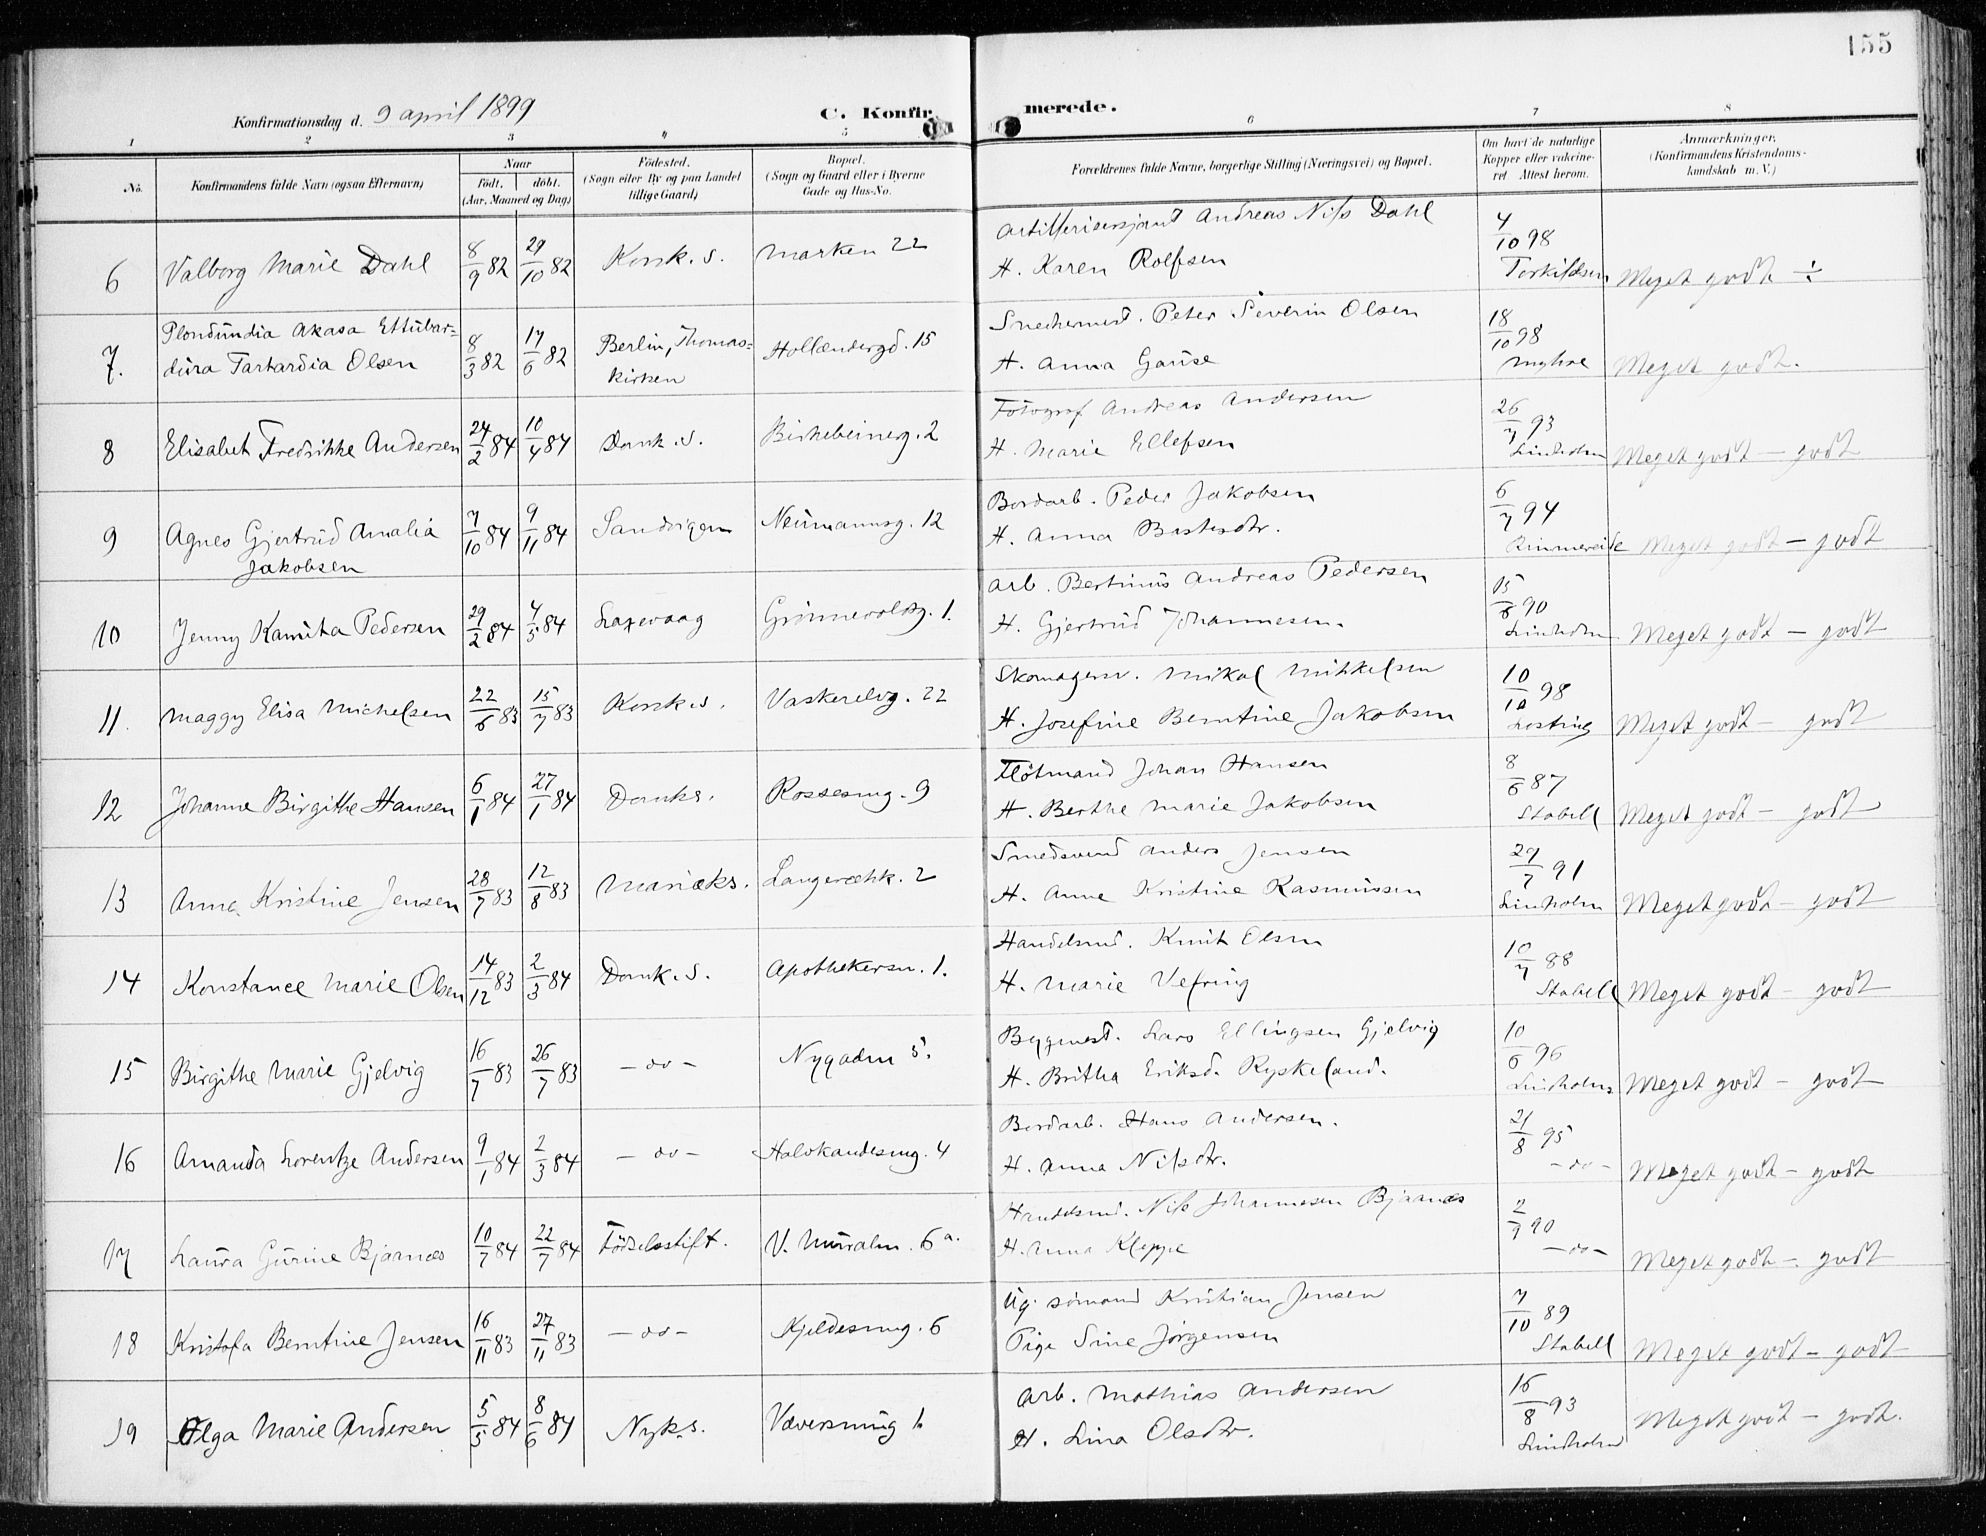 155
Konfirmationsdag d. 9 april 1899 C. Konfirmerede.
1 2 3 4 5 6 7 8
No. Konfirmandens fulde Navn (ogsaa Efternavn)
Naar
født, døbt.
(Aar, Maaned og Dag)
Fødested.
(Sogn eller By og paa Landet
tillige Gaard)
Bopæl.
(Sogn og Gaard eller i Byerne
Gade og Hus-No.
Forældrenes fulde Navne, borgerlige Stilling (Næringsvei) og Bopæl.
Om havt de naturlige
Kopper eller vakcine-
ret Attest herom.
Anmærkninger,
(Konfirmandens Kristendoms-
kundskab m. V.)
6 Valborg Marie Dahl 8/9 82 29/10 82 Korsk. s. Marken 22
Artillerisersjant Andreas Nils Dahl
H. Karen Rolfsen
4/10 98
Torkildsen Meget godt ÷
7. Plondundia Akasa Ettubar-
dura Tartardia Olsen 8/3 82 17/6 82
Berlin, Thomas-
kirken
Hollændergd. 15
Snedkermest. Peter Severin Olsen
H. Anna Gause
18/10 98
Myhre Meget godt.
8 Elisabet Fredrikke Andersen 24/2 84 10/4 84 Domk. s. Birkebeinerg. 2
Fotograf Andreas Andersen
H. Marie Ellefsen
26/7 93
Lindholm Meget godt - godt
9 Agnes Gjertrud Amalia
Jakobsen 7/10 84 9/11 84 Sandvigen Neumannsg. 12
Bordarb. Peder Jakobsen
H. Anna
6/7 94
Rimmereide Meget godt - godt
10 Jenny Kamita Pedersen 29/2 84 4/5 84 Laxevaag Grønnevoldsg. 1.
Arb. Bertinus Andreas Pedersen
H. Gjertrud Johannesen.
15/8 90
Lindholm Meget godt - godt
11. Maggy Elisa Michelsen 22/6 83 15/7 83 Korsk. s. Vaskerelvg. 22
Skomagersv. Mikal Mikkelsen
H. Josefine Berntine Jakobsen
10/10 98
Losting Meget godt - godt
12 Johanne Birgithe Hansen 6/1 84 27/1 84 Domks. Rossesmg. 9
Fløtmand Johan Hansen
H. Berthe Marie Jakobsen
8/6 87
Stabell Meget godt - godt
13 Anna Kristine Jensen 28/7 83 12/8 83 Mariæks. Langeræhk. 2
Smedsvend Anders Jensen
H. Anne Kristine Rasmussen
27/7 91
Lindholm Meget godt - godt
14 Konstance Marie Olsen 14/12 83 2/3 84 Domk. s. Apothekersm. 1.
Handelsmd. Knut Olsen
H. Marie Vefring
10/7 88
Stabell Meget godt - godt
15 Birgithe Marie Gjelvig 16/7 83 26/7 83 - do - Nygaden 5.
Bygmest. Lars Ellingsen Gjelvig
H. Britha Eriksd. Ryskeland.
10/6 96
Lindholm Meget godt - godt
16 Amanda Lorentze Andersen 9/1 84 2/3 84 - do - Halvkandesmg. 4
Bordarb. Hans Andersen.
H. Anna Nilsdtr.
21/8 95
- do - Meget godt - godt
17 Laura Gurine Bjaanæs 10/7 84 22/7 84 Fødselsstift. V. Muralm. 6 a.
Handelsmd. Nils Johannesen Bjaanæs
H. Anna Kleppe
2/9 90
- do - Meget godt - godt
18 Kristofa Berntine Jensen 16/11 83 27/11 83 - do - Kjeldesmg. 6
Ug. sømand Kristian Jensen
Pige Sine Jørgensen
7/10 89
Stabell Meget godt - godt
19 Olga Marie Andersen 5/5 84 8/6 84 Nyk. s. Væversmug 1.
Arb. Mathias Andersen
H. Lina Olsdtr.
16/8 93
Lindholm Meget godt - godt.